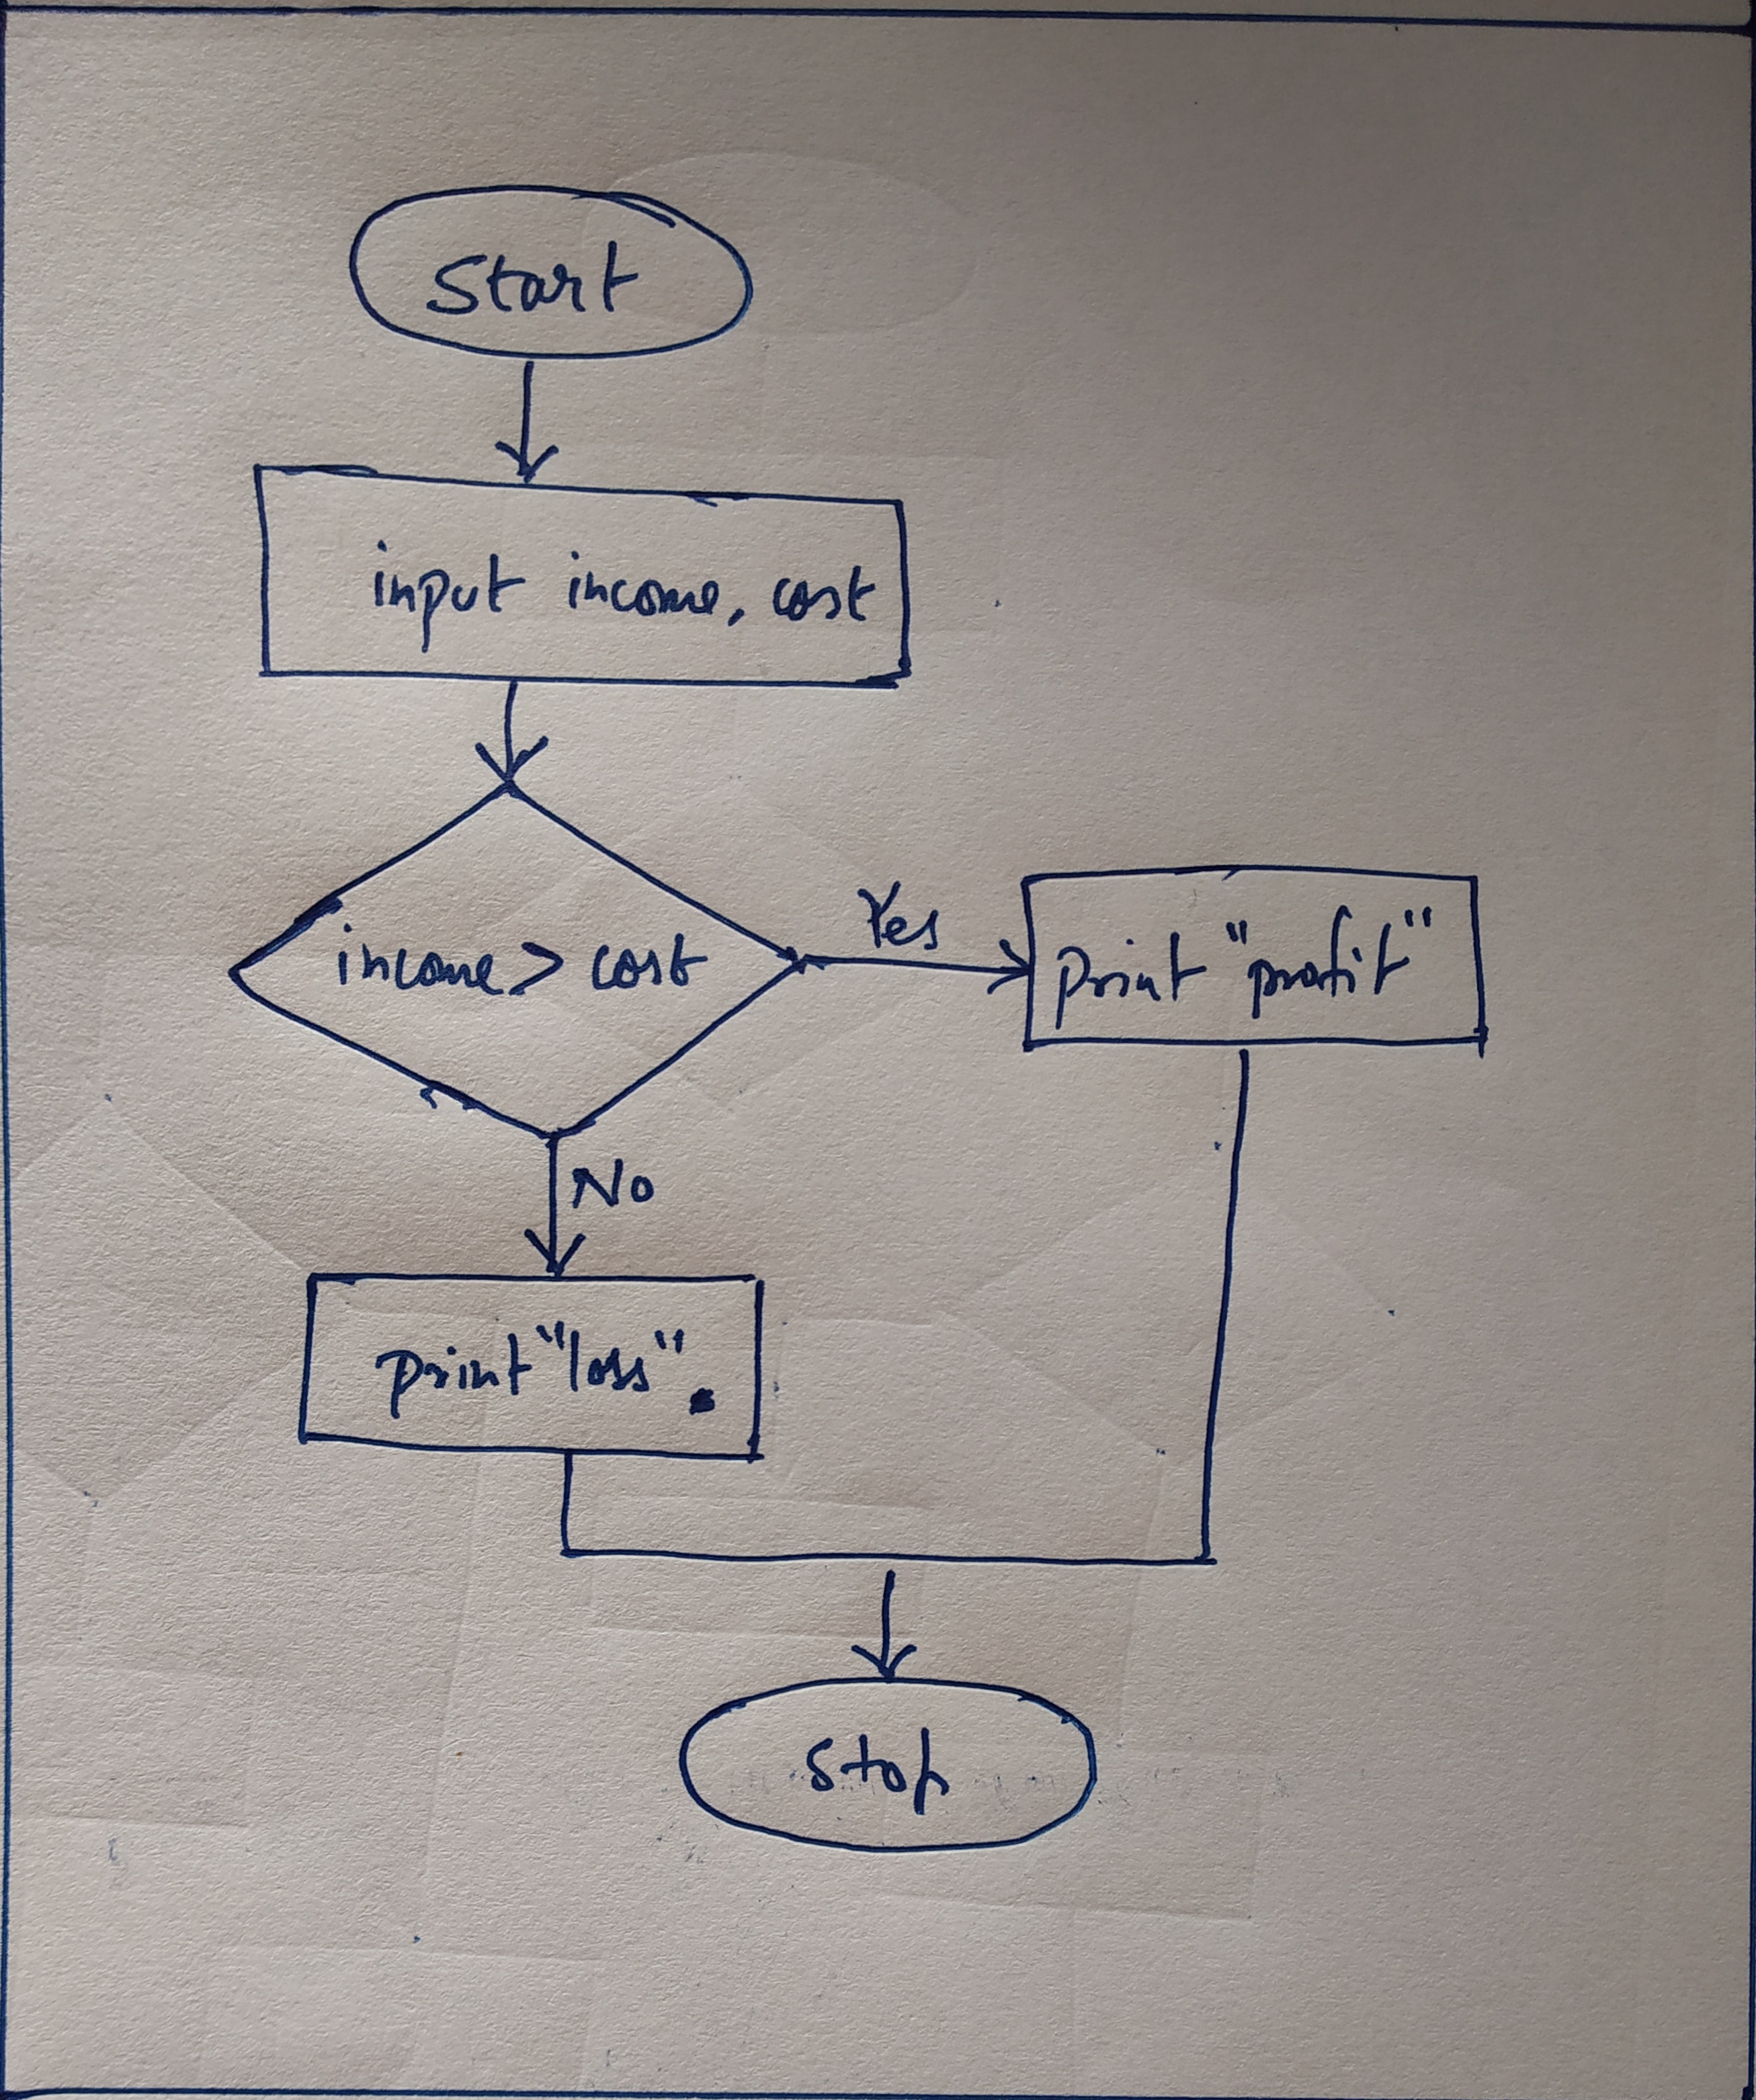 Start
input income, cost
income > cost
Yes
print "profit"
No
print "loss".
Stop